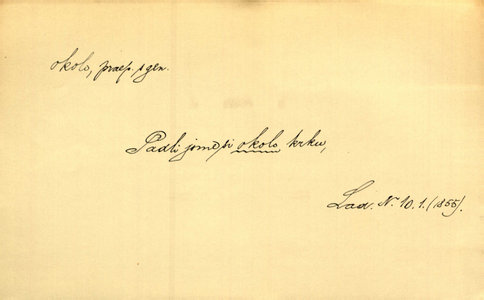 okolo, praep. s gen.
Padli jsme si okolo krku,
Lad. Nr. 10. 1. (1855).